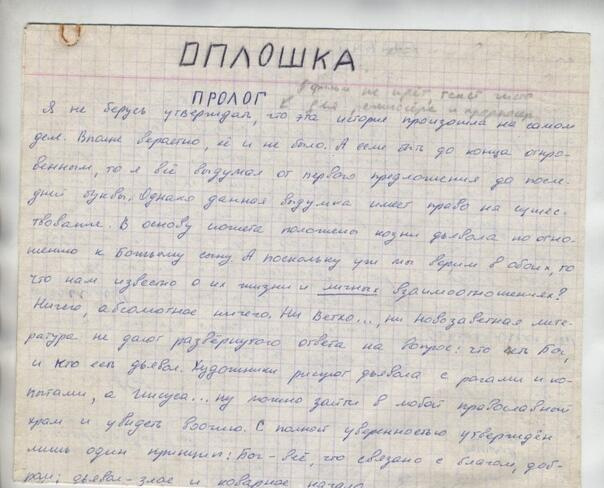 ОПЛОШКА
ПРОЛОГ
не идёт текст чисто
для режиссёра и
Я не берусь утверждать, что эта история произошла на самом
деле. Вполне вераятно, её и не было. А если быть до конца откро-
венным, то я всё выдумал от первого предложения до после-
дней буквы. Однако данная выдумка имеет право на сущес-
твование. В основу сюжета положены козни дьявола по отно-
шению к Божьему сыну. А поскольку уж мы верим в обоих, то
что нам известно о их жизни и личных взаимоотношениях?
Ничего, абсолютное ничего. Ни Ветхо..., ни новозаветная лите-
ратура не дают развёрнутого ответа на вопрос: что есть Бог,
и кто есть дьявол. Художники рисуют дьявола с рогами и ко-
пытами, а Иисуса... ну можно зайти в любой православной
храм и увидеть воочию. С полной уверенностью утверждён
лишь один принцип: Бог - всё, что связано с благом, доб-
ром; дьявол - злое и коварное начало.